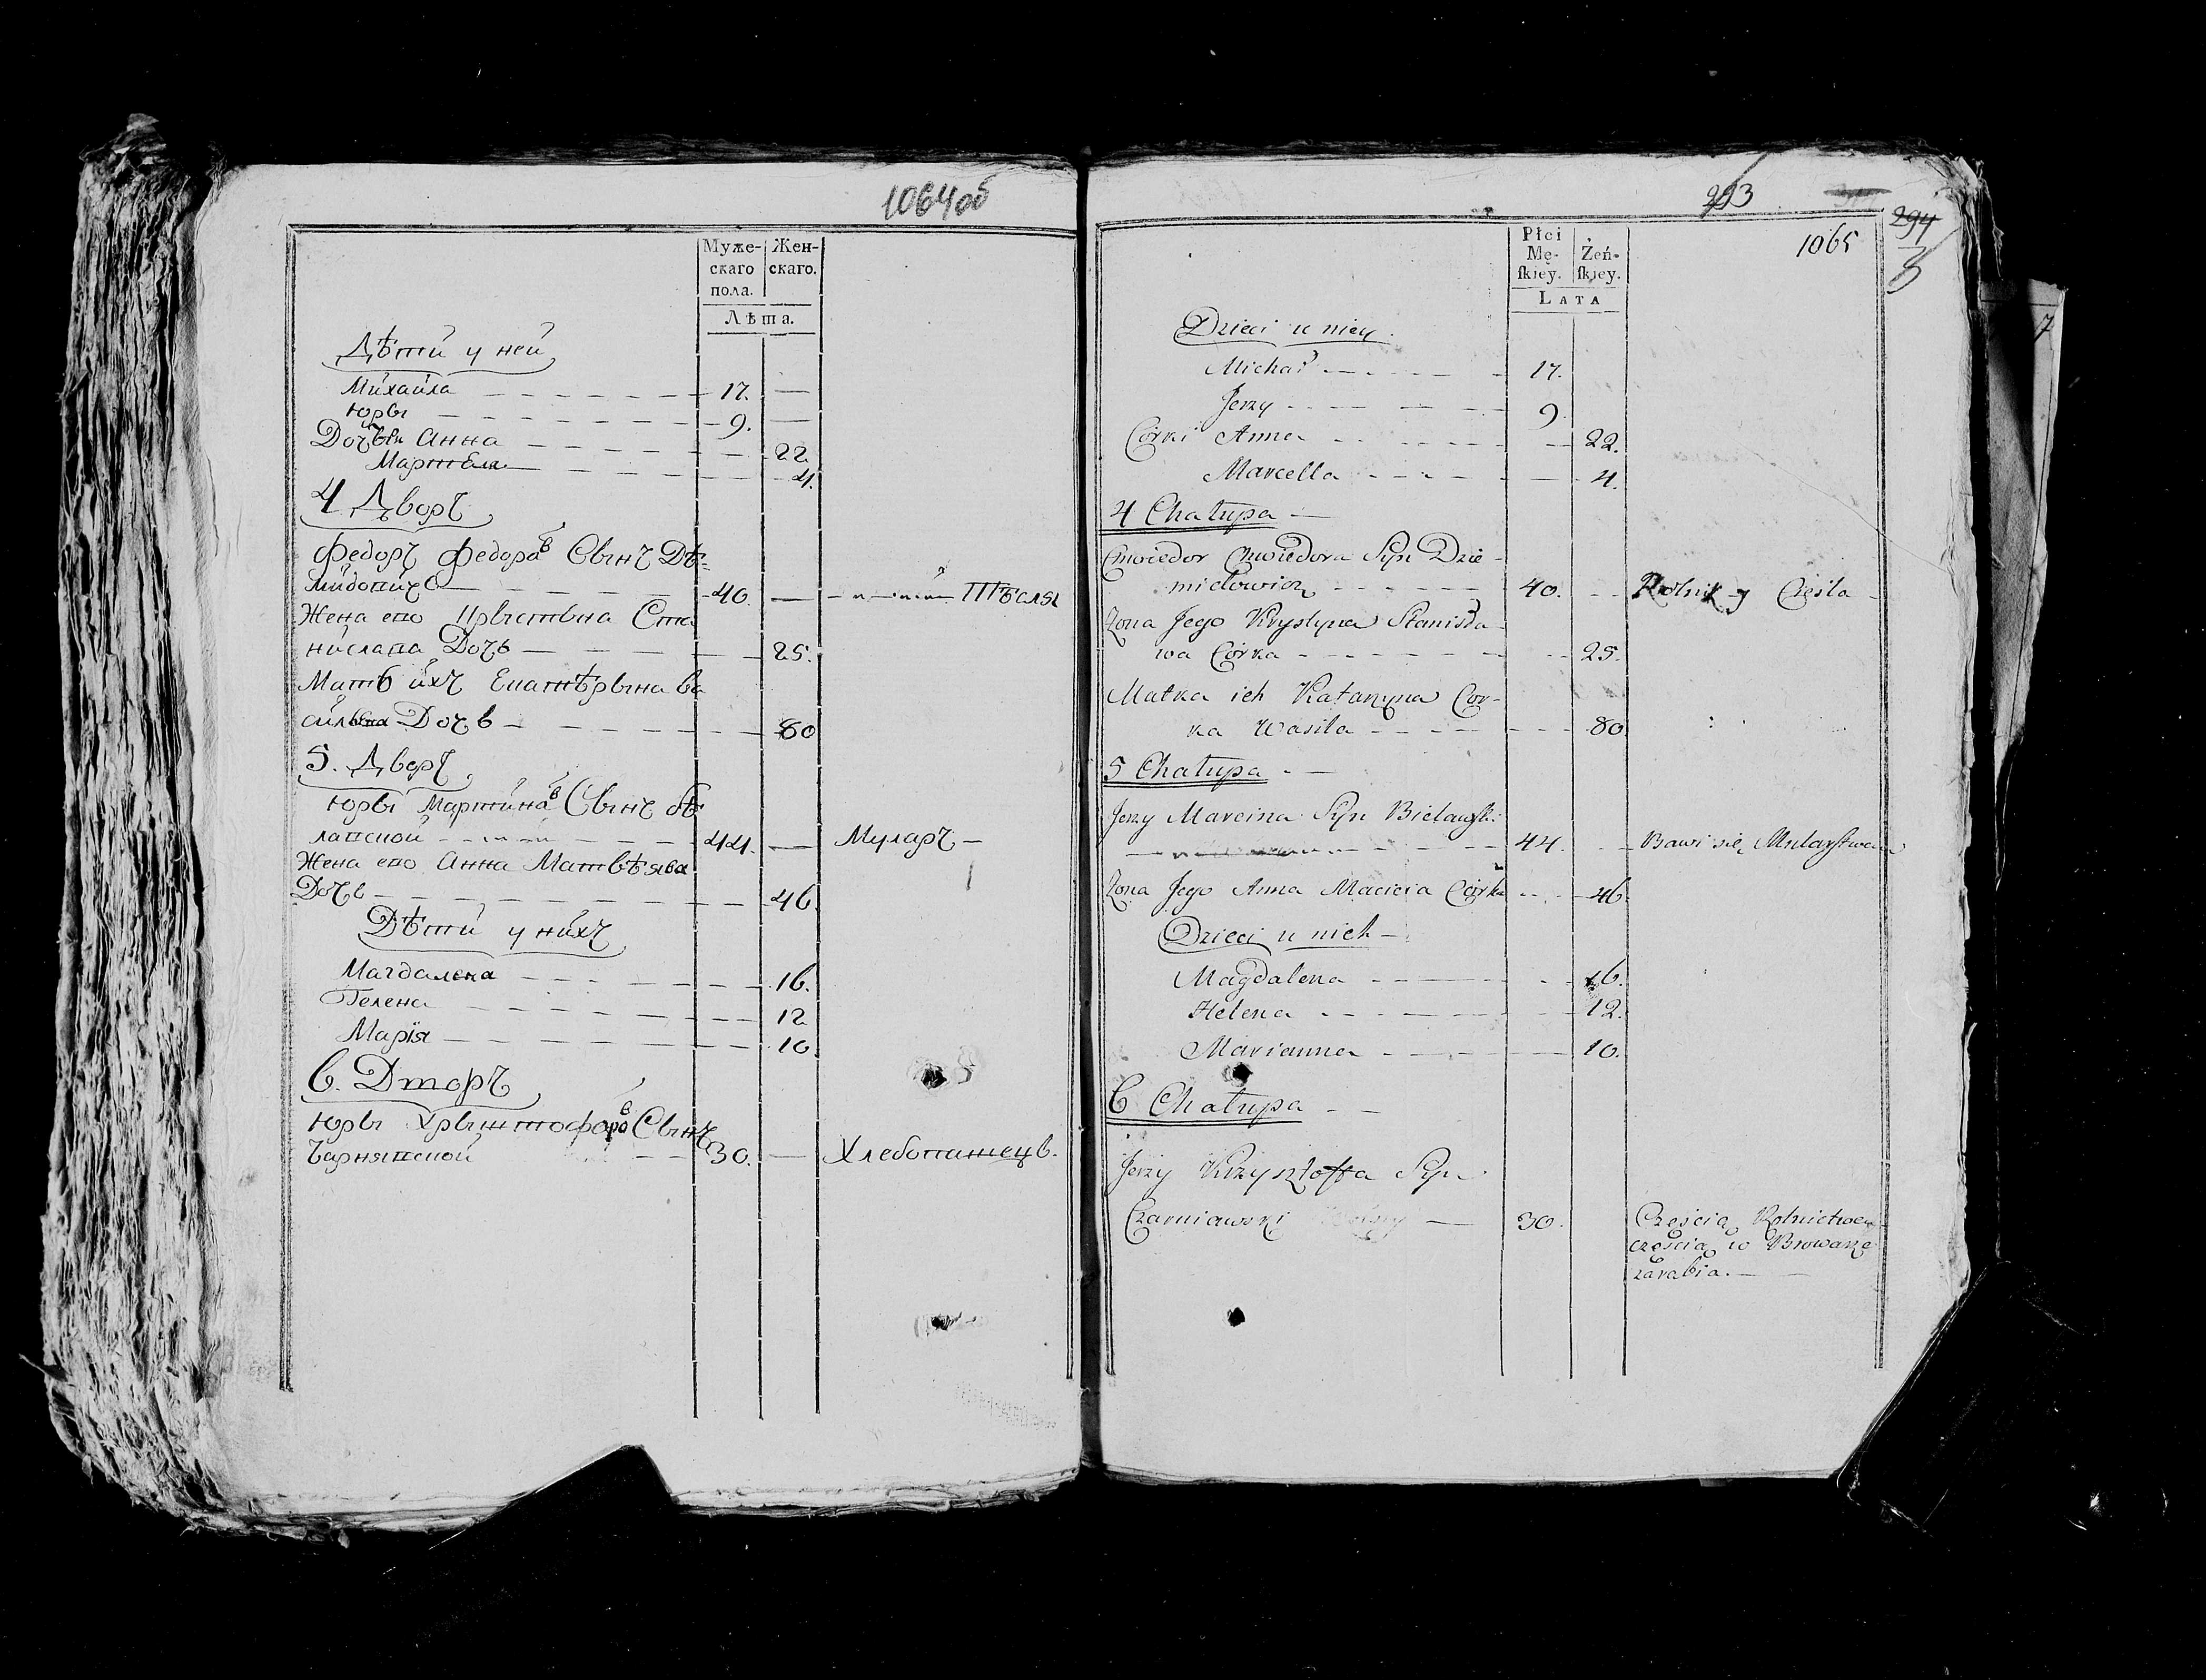 1064об
Муже-
скаго
пола.
Жен-
скаго.
Лѣта.
Дѣти у ней
Михайла 17. —
Юры 9. —
Дочѣри Анна 22
4.
4 Дворъ
Федоръ Федоровъ Сынъ Дѣ-
мидовичъ 40. — Тѣсля
Жена его Крыстына Ста
нислава Дочь 25.
Мать ихъ Екатѣрына Ва
силья Дочь 80
5. Дворъ
Юры Мартиновъ Сынъ бѣ
лавской 44. — Муларъ —
Жена его Анна Матвѣява
Дочь 46.
Дѣти у нихъ
Магдалена 16.
Гелена 12
Марія 10
6. Дворъ
Юры Хрыштофоровъ Сынъ
Чарнявской 30. — Хлебопашецъ.
293
294
1065
Płci
Mę-
ſkiey.
Żeń-
ſkiey.
LATA
Dzieci u niey.
Michał 17.
Jerzy 9.
Córki Anna 22.
Marcella 4.
4 Chałupa —
Chwiedor Chwiedora Syn Dzie-
midowicz 40. Rolnik y Cieśla
Żona Jego Krystyna Stanisła-
wa Córka 25.
Matka ich Katarzyna Cór-
ka Wasila 80
5 Chałupa —
Jerzy Marcina Syn Bielawski
44. Bawi się Mularstwem
Żona Jego Anna Macieia Córka 46.
Dzieci u nich —
Magdalena 16.
Helena 12.
Marianna 10.
6 Chałupa —
Jerzy Krzysztoffa Syn
Czarniawski 30. Częścią Rolnictwem
częścią w Browarze
zarabia. —
7